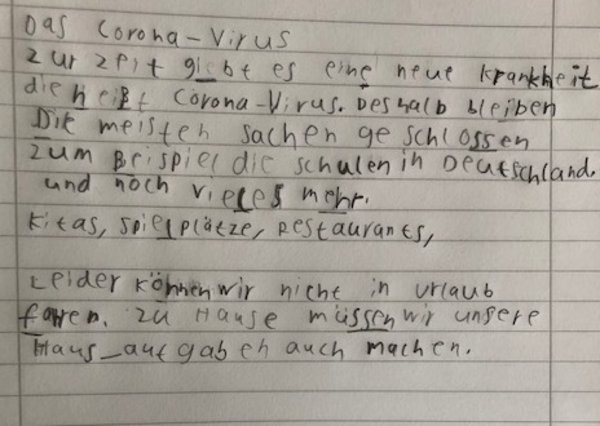 Das Corona-Virus
zur zeit giebt es eine neue krankheit
die heißt Corona-Virus. Deshalb bleiben
Die meisten sachen geschlossen
zum Beispiel die schulen in Deutschland.
und noch vieles mehr.
Kitas, spielplätze, Restaurants,
Leider können wir nicht in urlaub
fahren. zu Hause müssen wir unsere
Haus_aufgaben auch machen.